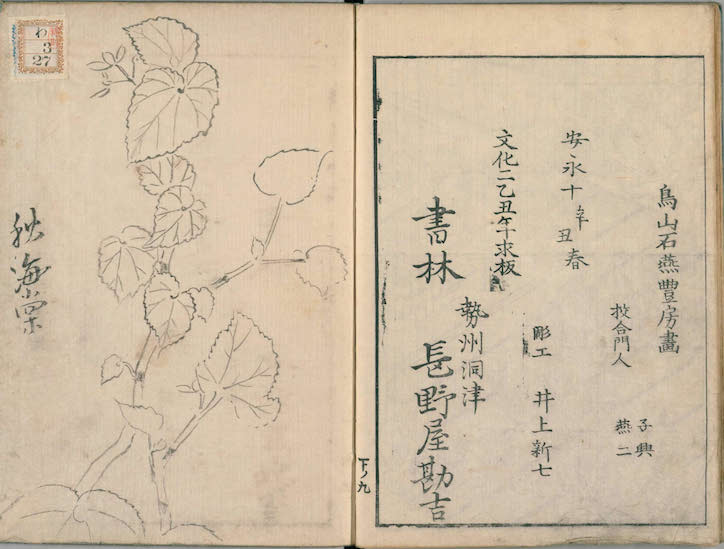 鳥山石燕豊房畫
挍合門人
子興
燕二
安永十辛丑春
彫工 井上新七
文化二乙丑年求板
勢州洞津
書林 長野屋勘吉
下ノ九
わ
3
27
秋海棠